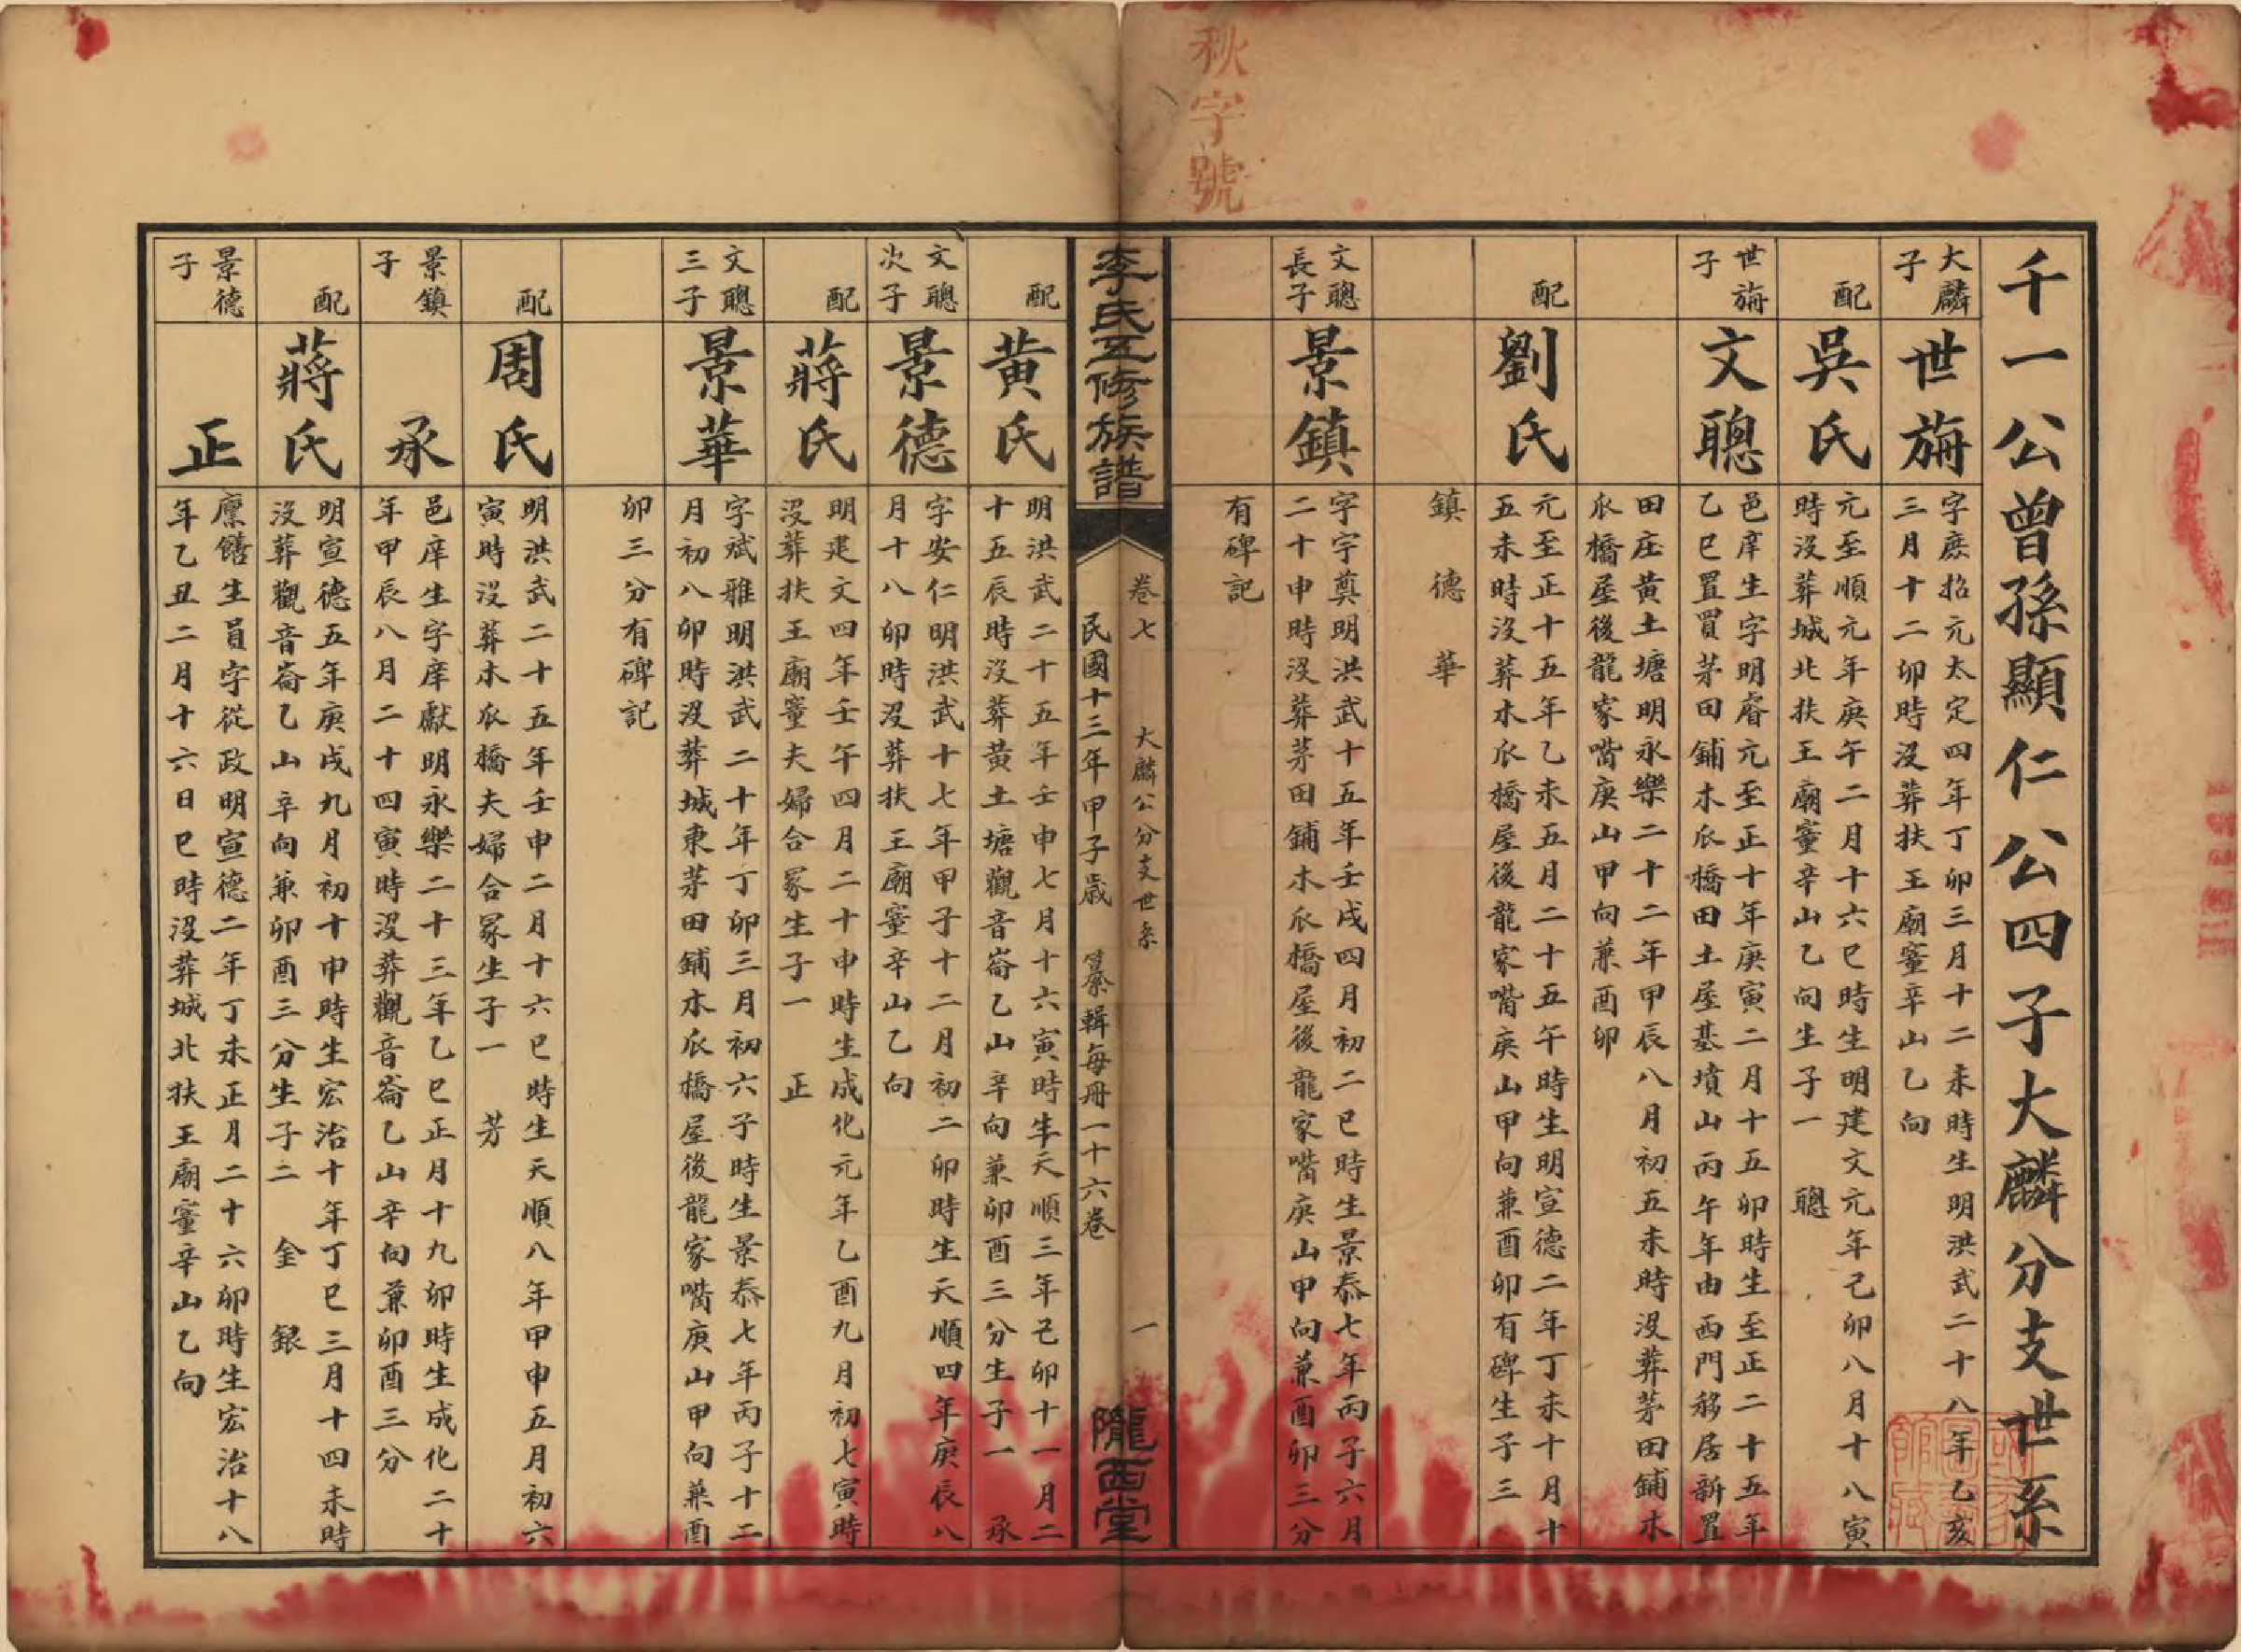 秋字號
千一公曾孫顯仁公四子大麟分支世系
大麟
子
世旃
字庶招元太定四年丁卯三月十二未時生明洪武二十八年乙亥
三月十二卯時沒葬扶王廟寷辛山乙向
配
吳氏
元至順元年庚午二月十六巳時生明建文元年己卯八月十八寅
時沒葬城北扶王廟寷辛山乙向生子一 聰
世旃
子
文聰
邑庠生字明睿元至正十年庚寅二月十五卯時生至正二十五年
乙巳置買茅田鋪木瓜橋田土屋基墳山丙午年由西門移居新置
田庄黄土塘明永樂二十二年甲辰八月初五未時沒葬茅田鋪木
瓜橋屋後龍家嘴庚山甲向兼酉卯
配
劉氏
元至正十五年乙未五月二十五午時生明宣德二年丁未十月十
五未時沒葬木瓜橋屋後龍家嘴庚山甲向兼酉卯有碑生子三
鎮 德 華
文聰
長子
景鎮
字字奠明洪武十五年壬戌四月初二巳時生景泰七年丙子六月
二十申時沒葬茅田鋪木瓜橋屋後龍家嘴庚山甲向兼酉卯三分
有碑記
李氏五修族譜
卷七
大麟公分支世系
一
民國十三年甲子歲 纂輯每册一十六卷
隴西堂
配
黄氏
明洪武二十五年壬申七月十六寅時生天順三年己卯十一月二
十五辰時沒葬黄土塘觀音崙乙山辛向兼卯酉三分生子一 承
文聰
次子
景德
字安仁明洪武十七年甲子十二月初二卯時生天順四年庚辰八
月十八卯時沒葬扶王廟寷辛山乙向
配
蔣氏
明建文四年壬午四月二十申時生成化元年乙酉九月初七寅時
沒葬扶王廟寷夫婦合冢生子一 正
文聰
三子
景華
字斌雅明洪武二十年丁卯三月初六子時生景泰七年丙子十二
月初八卯時沒葬城東茅田鋪木瓜橋屋後龍家嘴庚山甲向兼酉
卯三分有碑記
配
周氏
明洪武二十五年壬申二月十六巳時生天順八年甲申五月初六
寅時沒葬木瓜橋夫婦合冢生子一 芳
景鎮
子
承
邑庠生字庠獻明永樂二十三年乙巳正月十九卯時生成化二十
年甲辰八月二十四寅時沒葬觀音崙乙山辛向兼卯酉三分
配
蔣氏
明宣德五年庚戌九月初十申時生宏治十年丁巳三月十四未時
沒葬觀音崙乙山辛向兼卯酉三分生子二 金 銀
景德
子
正
廩饍生員字從政明宣德二年丁未正月二十六卯時生宏治十八
年乙丑二月十六日巳時沒葬城北扶王廟寷辛山乙向